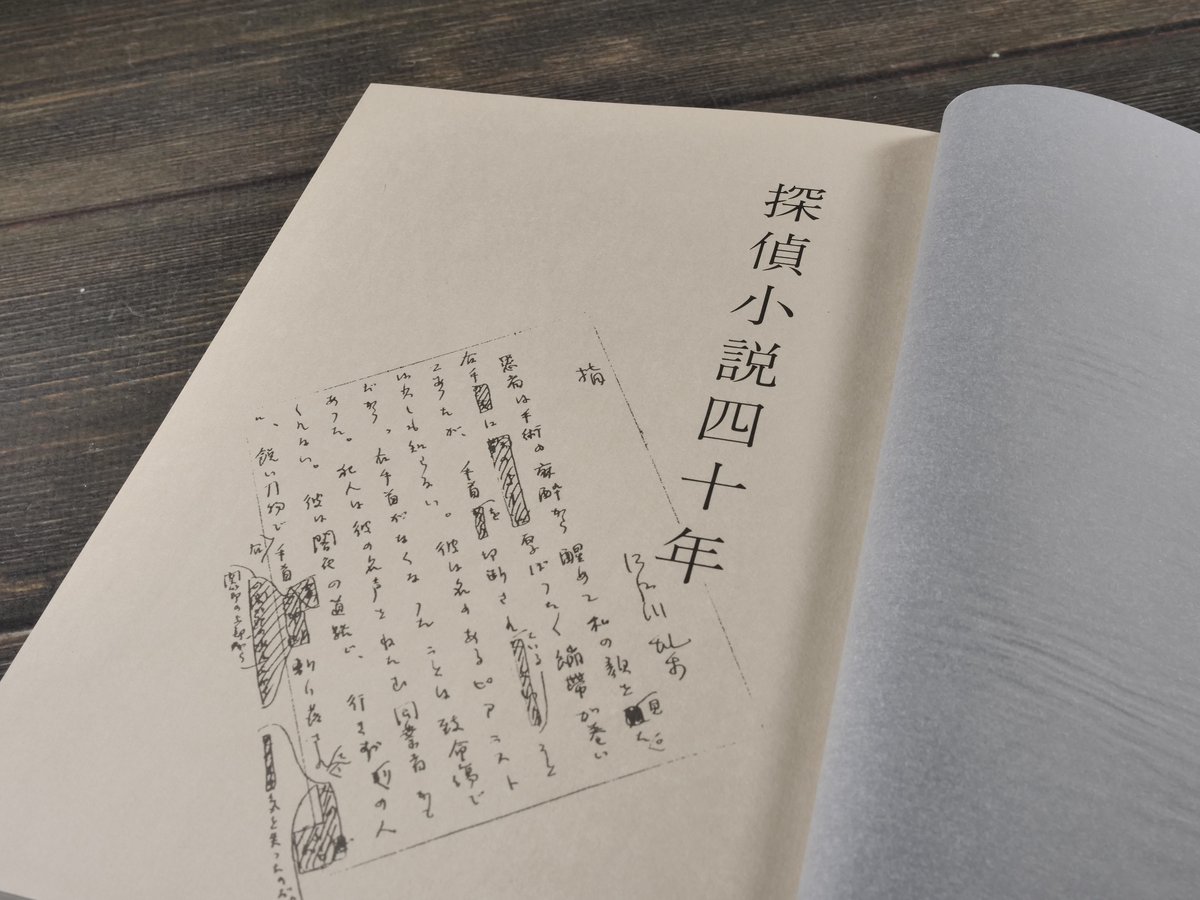 探偵小説四十年
指
江戸川乱歩
患者は手術の麻酔から醒めて私の顔を見た。
右手に厚ぼったく繃帯が巻い
てあったが、手首を切断されていること
は少しも知らない。彼は名のあるピアニスト
だから、右手首がなくなったことは致命傷で
あった。犯人は彼の名声をねたむ同業者かも
しれない。彼は闇夜の道路で、行きずりの人
に、鋭い刃物で右手首
関節の上部から
斬り落さ
気を失ったのだ